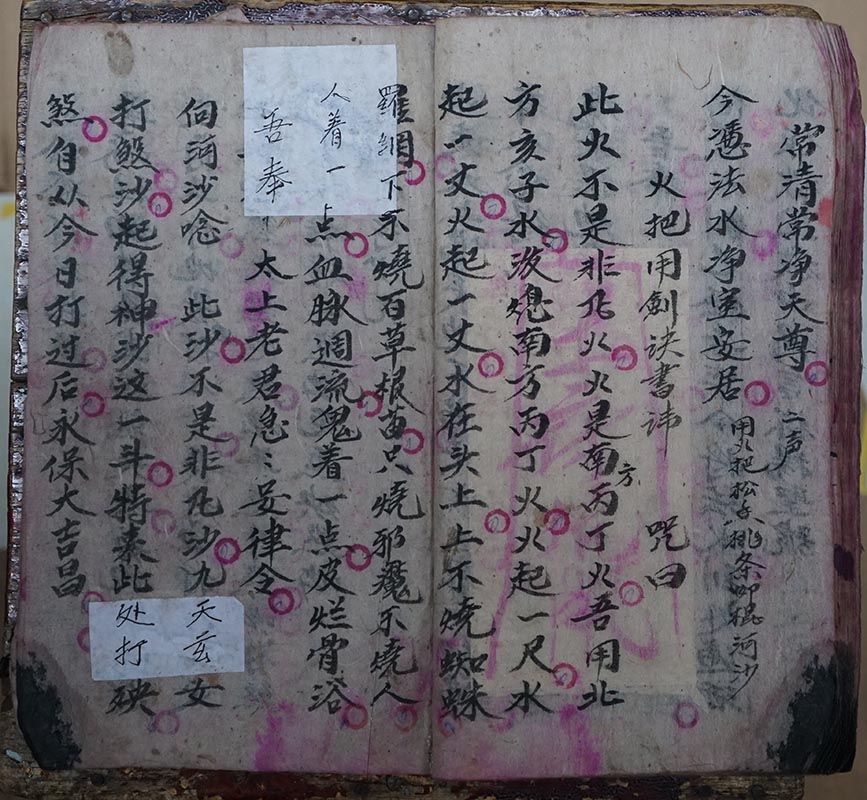 常清常净天尊 二声
今憑法水净堂安居 用火把松香桃条柳棍河沙
火把用劍诀書讳 咒曰
此火不是非凡火火是南方丙丁火吾用北
方亥子水波熄南方丙丁火火起一尺水
起一丈火起一丈水在头上上不燒蜘蛛
羅網下不燒百草根苗只燒邪魔不燒人
人着一点血脉週流鬼着一点皮烂骨浴
吾奉 太上老君急〻如律令
河沙唸 此沙不是非凡沙九天玄女
打煞沙起得神沙这一斗特来此处打殃
煞自从今日打过后永保大吉昌